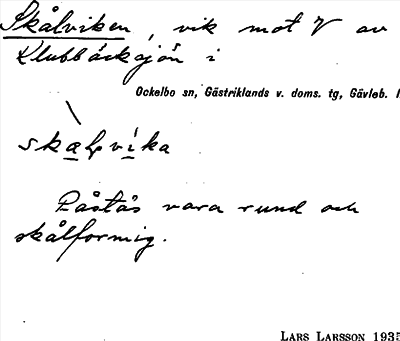 Skålviken, vik mot V av
Klubbäcksjön i
Ockelbo sn, Gästriklands v. doms. tg, Gävleb. l
Påstås vara rund och
skålformig.
LARS LARSSON 1935